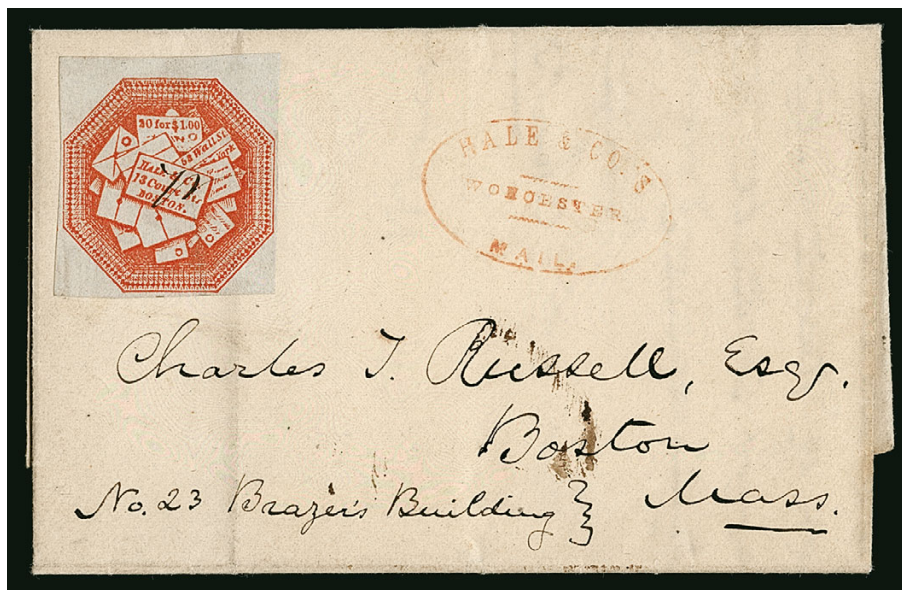 20 for $1.00
52 Wall St.
York
HALE & Co.
13 Court Str
BOSTON.
HALE & CO.'S
WORCESTER
MAIL.
Charles T. Russell, Esqr.
Boston
No. 23 Brazer's Building } Mass.